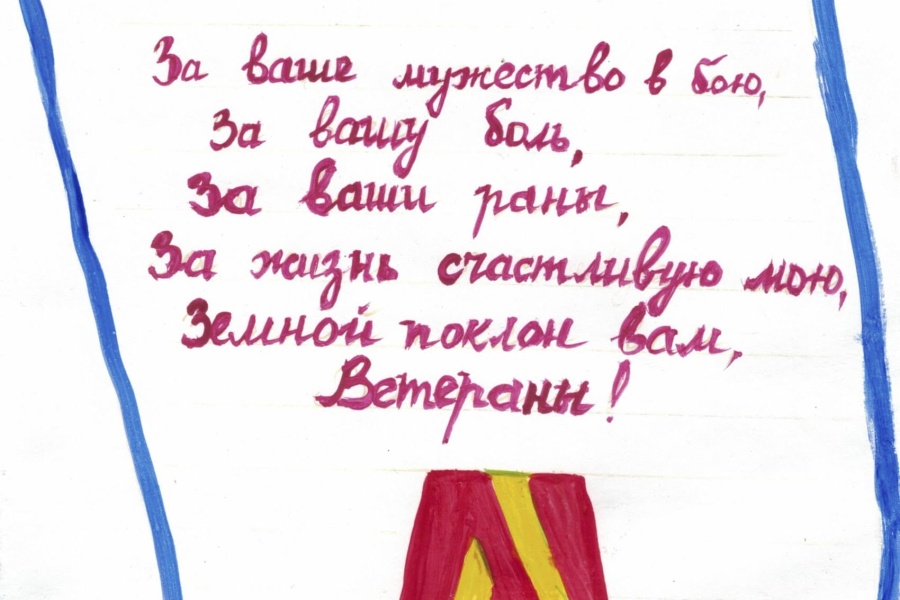 За ваше мужество в бою,
За вашу боль,
За ваши раны,
За жизнь счастливую мою,
Земной поклон вам,
Ветераны!